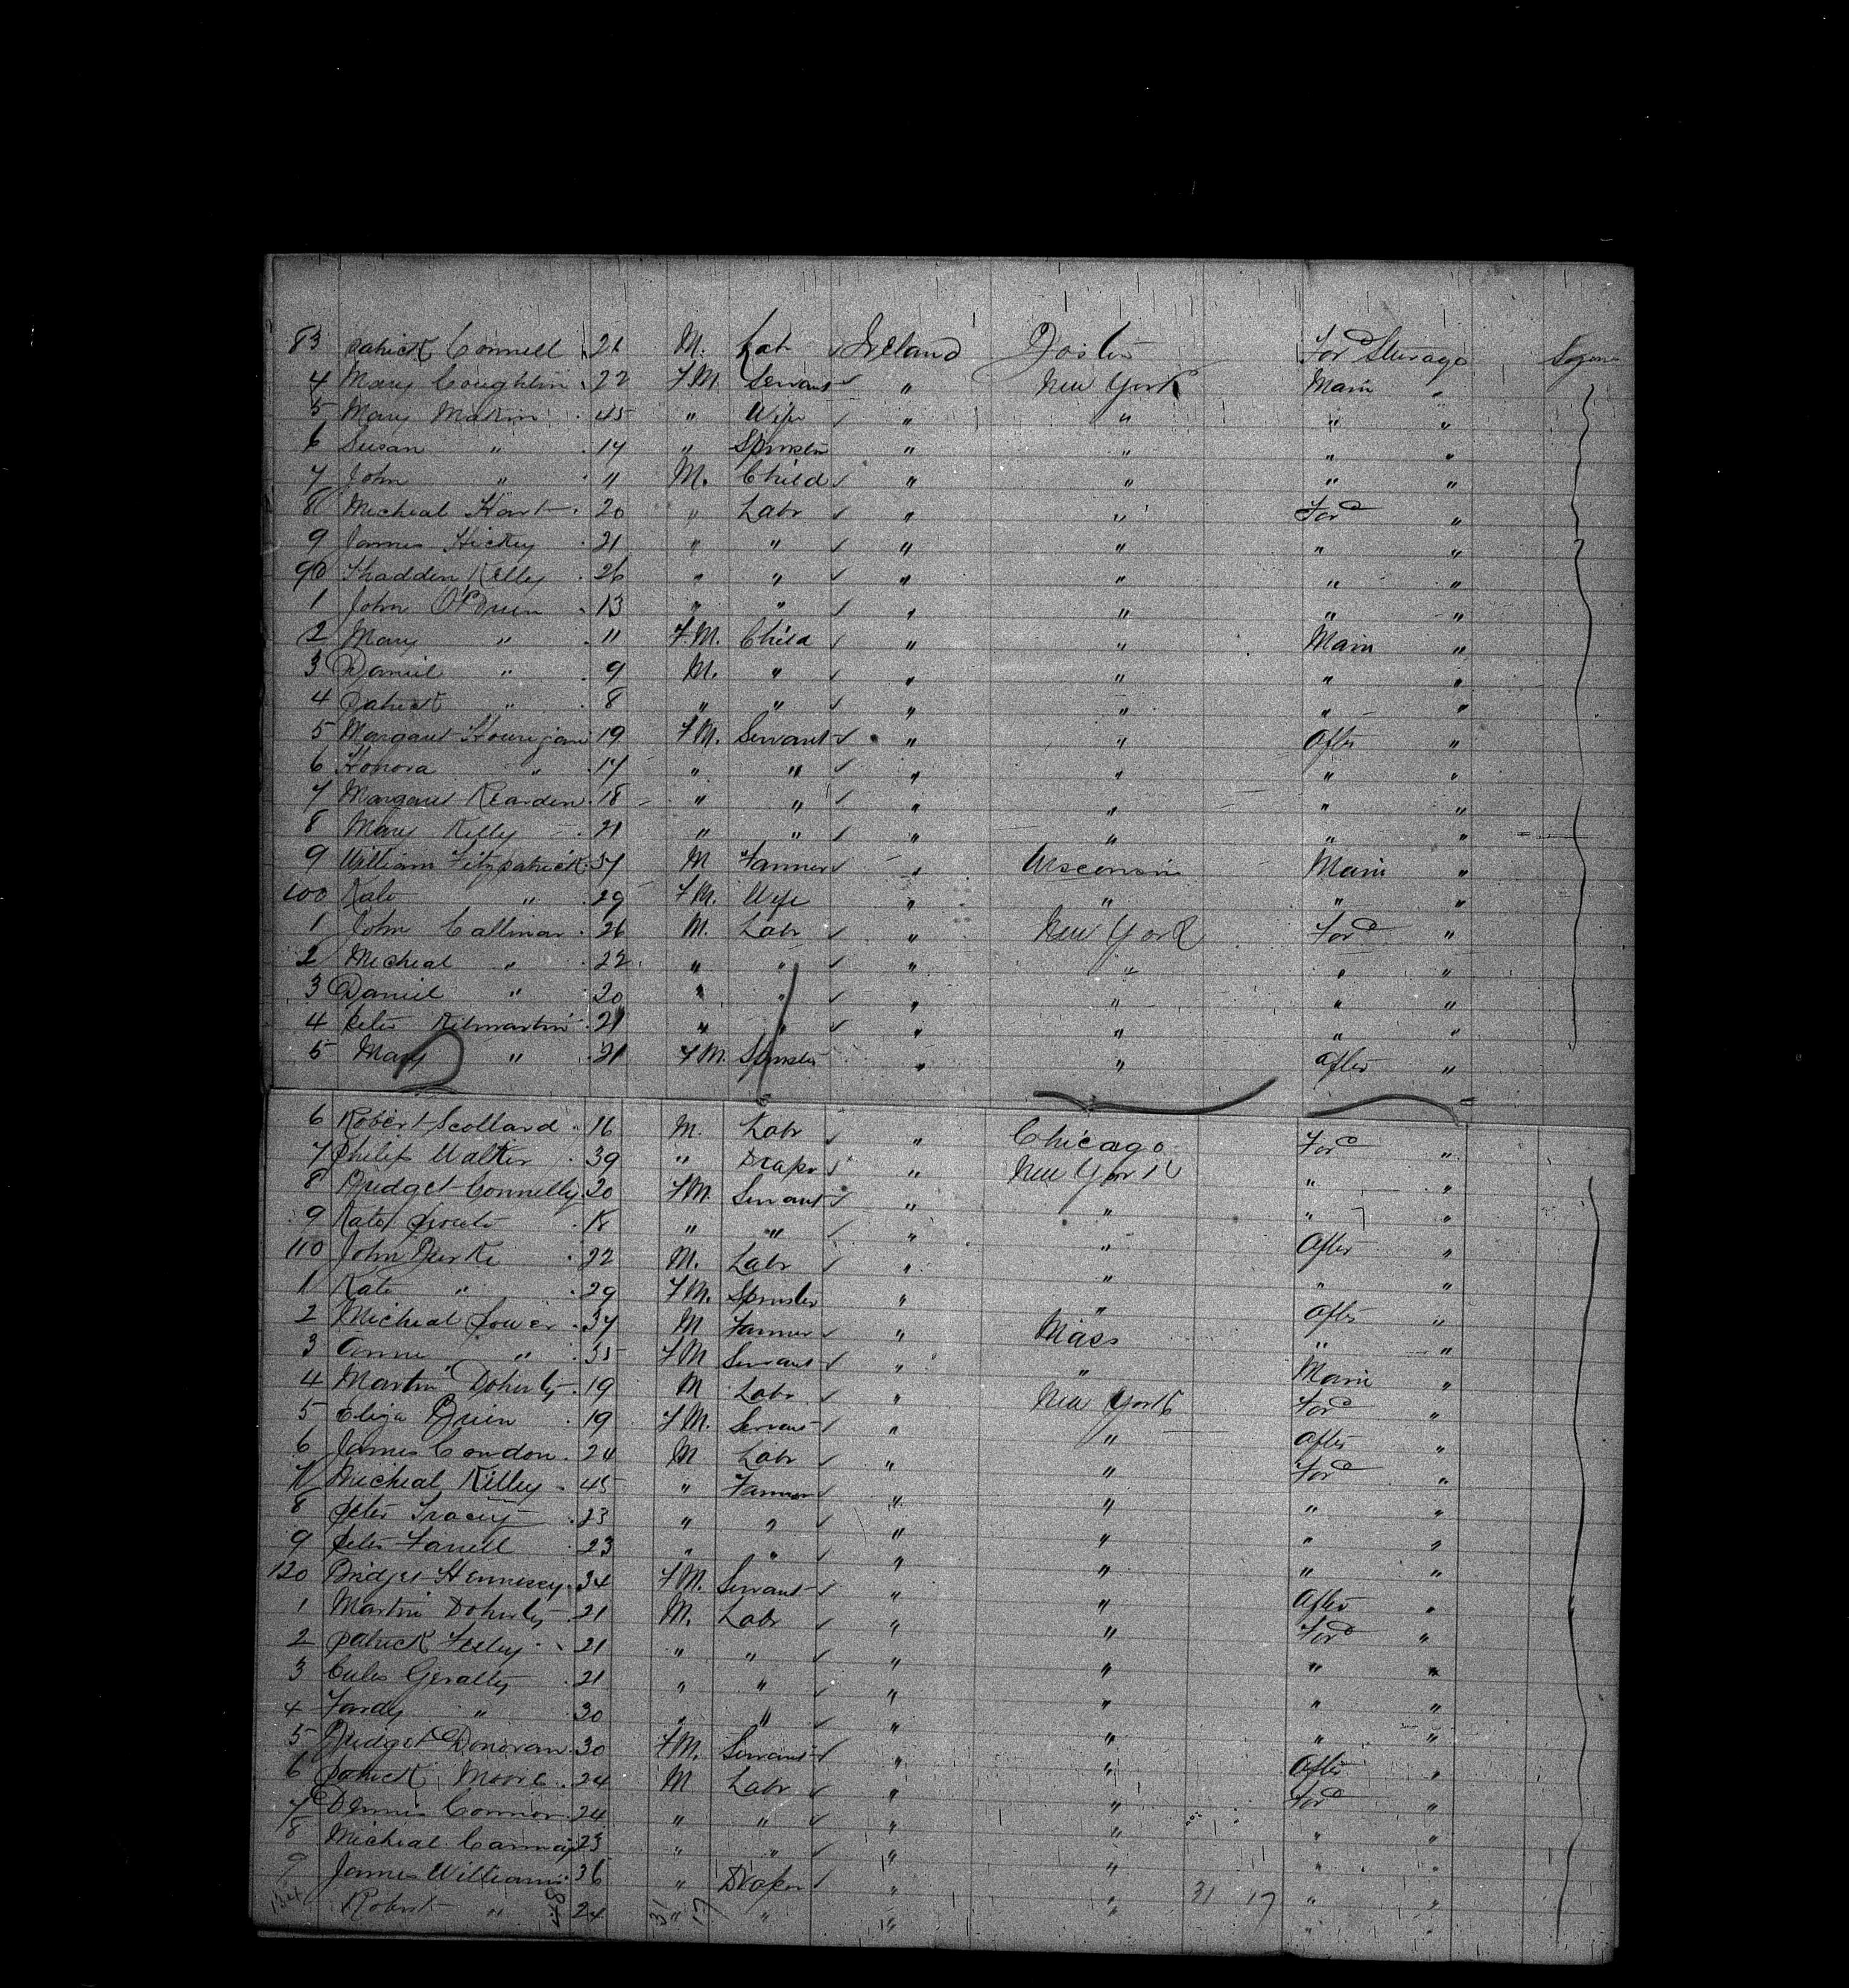 83 Patrick Connell 26 M. Labr ✓ Ireland Boston For'd Sturage
4 Mary Coughlin 22 FM. Servant ✓ " New York Main "
5 Mary Makin 45 " Wife ✓ " " " "
6 Susan " 14 " Spinster " " " "
7 John " 11 M. Child ✓ " " " "
8 Micheal Hart 20 " Labr ✓ " " For'd "
9 James Hickey 21 " " ✓ " " " "
90 Thadden Kelly 26 " " ✓ " " " "
1 John O'Brien 13 " " ✓ " " " "
2 Mary " 11 F.M. Child ✓ " " Main "
3 Daniel " 9 M. " ✓ " " " "
4 Patrick " 8 " " ✓ " " " "
5 Margaret Hourigan 19 FM. Servant ✓ " " After "
6 Honora " 17 " " ✓ " " " "
7 Margaret Rearden 18 " " ✓ " " " "
8 Mary Kelly 21 " " ✓ " " " "
9 William Fitzpatrick 37 M Farmer ✓ " Wisconsin Main "
100 Kate " 29 FM. Wife " " " "
1 John Callinan 26 M. Labr ✓ " New York For'd "
2 Micheal " 22 " " ✓ " " " "
3 Daniel " 20 " " ✓ " " " "
4 Peter Kilmartin 21 " " ✓ " " " "
5 Mary " 21 FM. Spinster " " After "
6 Robert Scollard 16 M. Labr ✓ " Chicago For'd "
7 Philip Walter 39 " Draper ✓ " New York " "
8 Bridget Connelly 20 FM. Servant ✓ " " " "
9 Kate 18 " " ✓ " " After "
110 John Burke 22 M. Labr ✓ " " " "
1 Kate " 29 FM. Spinster " " After "
2 Micheal Power 37 M Farmer ✓ " Mass " "
3 Anne " 35 FM Servant ✓ " " Main "
4 Martin Doherty 19 M Labr ✓ " New York For'd "
5 Eliza Brien 19 FM. Servant ✓ " " After "
6 James Condon 24 M Labr ✓ " " For'd "
7 Micheal Kelley 45 " Farmer ✓ " " " "
8 Peter Tracey 23 " " ✓ " " " "
9 Peter Farrell 23 " " ✓ " " " "
120 Bridget Hennesey 34 FM. Servant ✓ " " After "
1 Martin Doherty 21 M. Labr ✓ " " For'd "
2 Patrick 21 " " ✓ " " " "
3 Geralty 21 " " ✓ " " " "
4 " 30 " " ✓ " " " "
5 Bridget Donovan 30 FM. Servant ✓ " " After "
6 Patrick Moore 24 M Labr ✓ " " For'd "
7 Dennis Connor 24 " " ✓ " " " "
8 Micheal 23 " " ✓ " " " "
9 James Williams 36 " Draper ✓ " " " "
Robert " 24 " " " " 31 17 " "